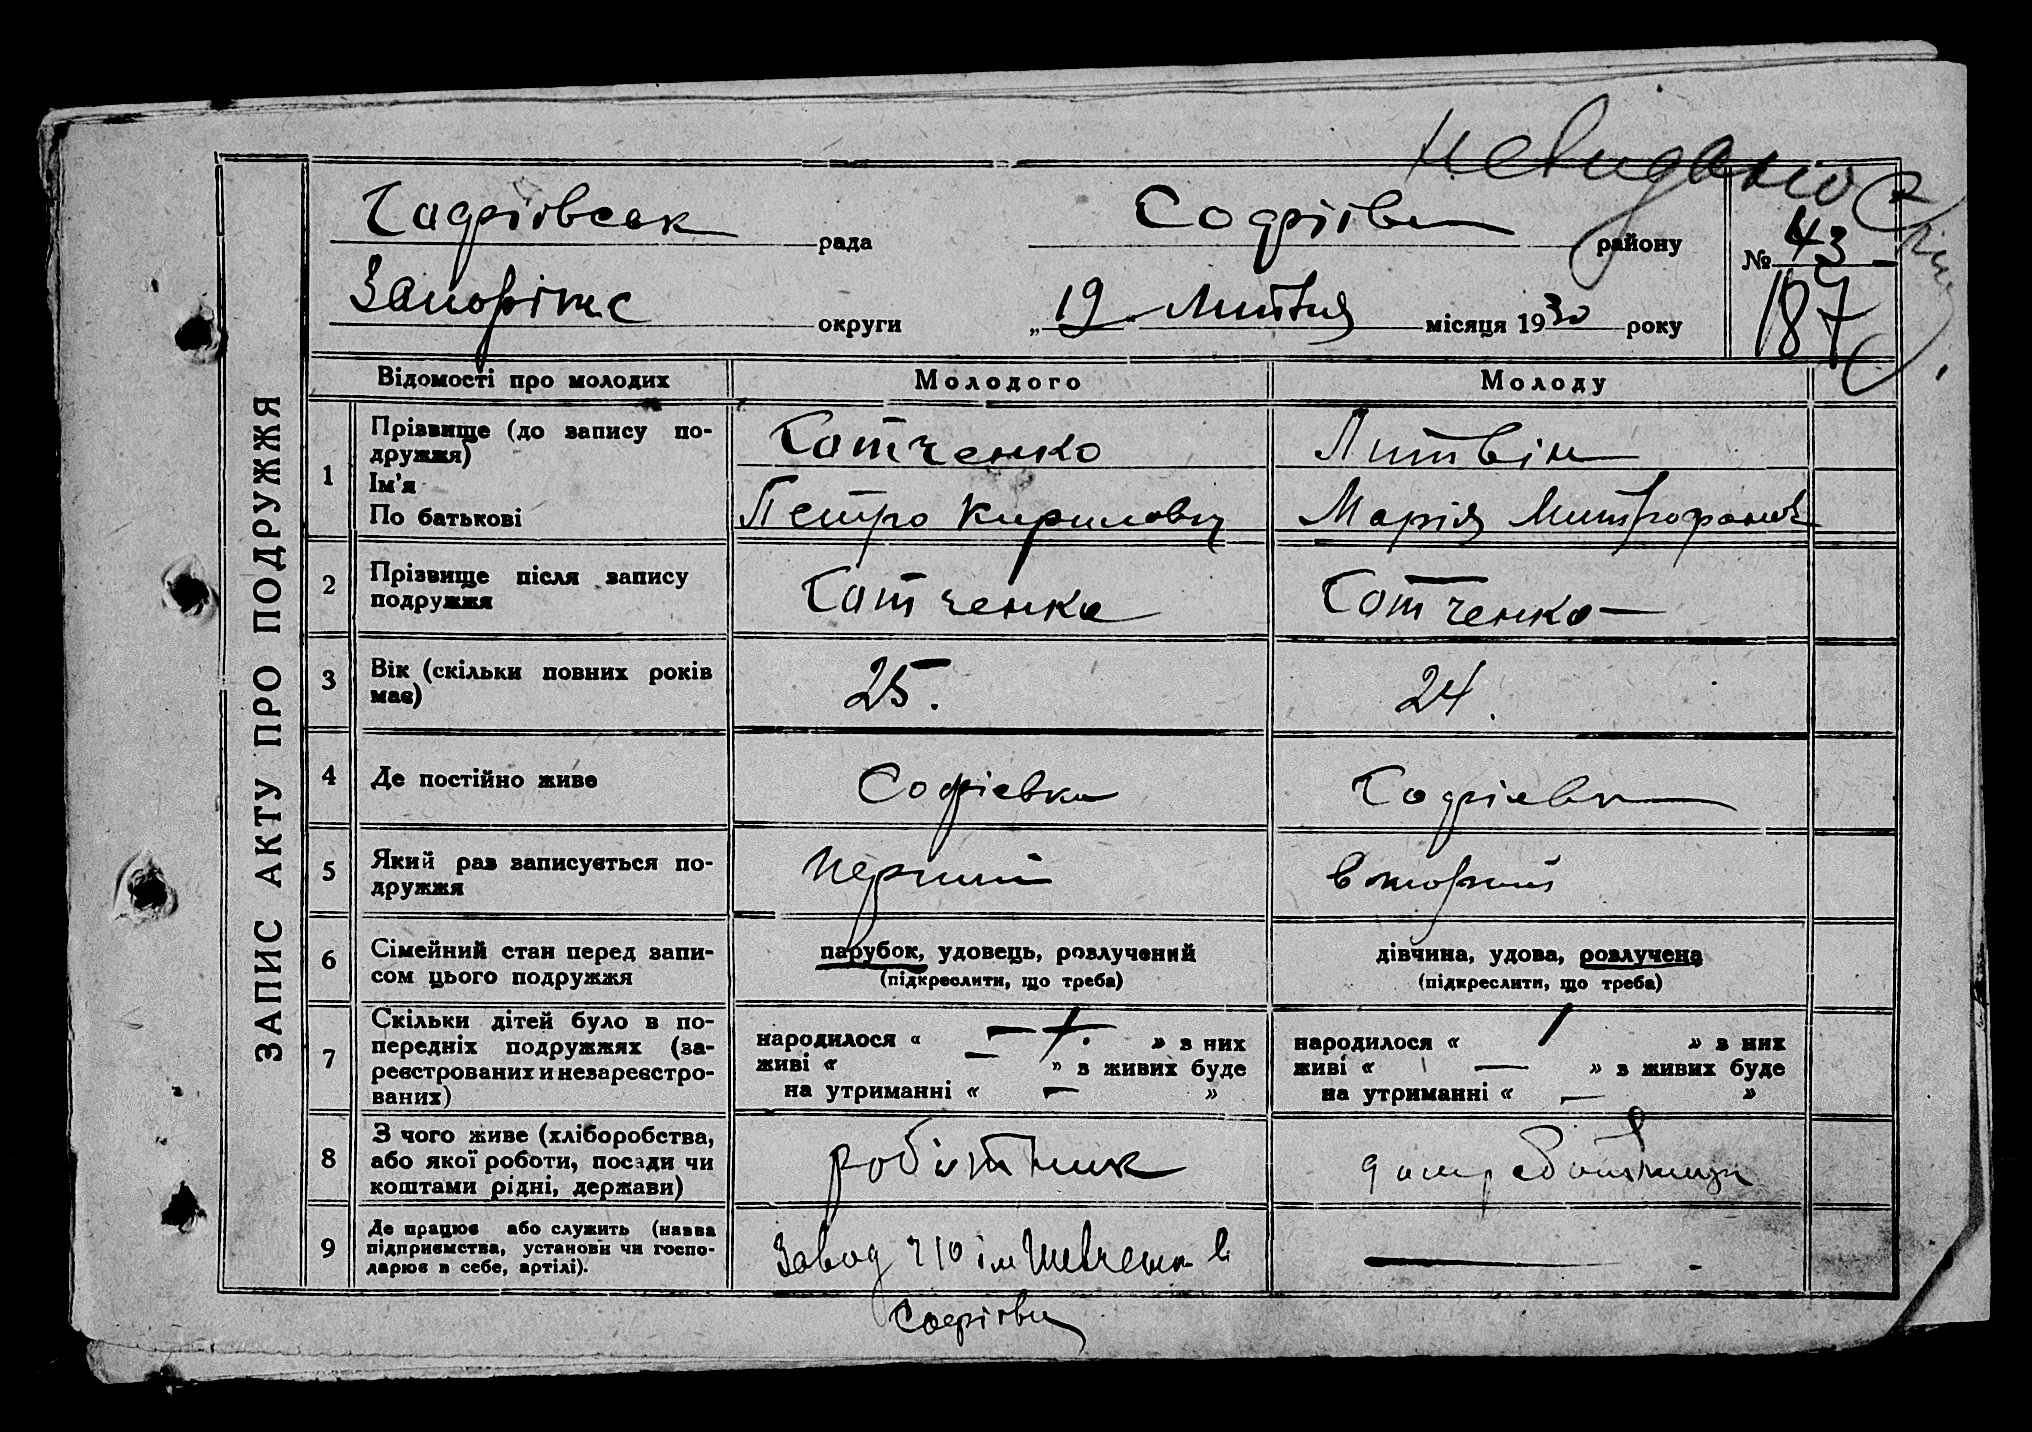 невидано
Софіївськ рада Софіївк району № 43
187
Запоріжс округи „19" Липня місяця 1930 року
ЗАПИС АКТУ ПРО ПОДРУЖЖЯ
Відомості про молодих Молодого Молоду
1 Прізвище (до запису подружжя) Сотченко Литвін
Ім'я
По батькові Петро Кирилович Марія Митрофанів
2 Прізвище після запису
подружжя Сотченко Сотченко
3 Вік (скільки повних років
має) 25. 24.
4 Де постійно живе Софієвка Софіевк
5 Який раз записується по-
дружжя перший вторий
6 Сімейний стан перед запи-
сом цього подружжя
парубок, удовець, розлучений дівчина, удова, розлучена
(підкреслити, що треба) (підкреслити, що треба)
7 Скільки дітей було в по-
передніх подружжях (за-
реєстрованих и незареєстро-
ваних)
народилося « — » з них народилося « / » з них
живі « — » в живих буде живі « — » в живих буде
на утриманні « — » на утриманні « — »
8 З чого живе (хліборобства,
або якої роботи, посади чи
коштами рідні, держави)
робітник
9 Де працює або служить (назва
підприємства, установи чи госпо-
дарює в себе, артілі).
Завод ч 10 ім Шевченка в —
Софіївц